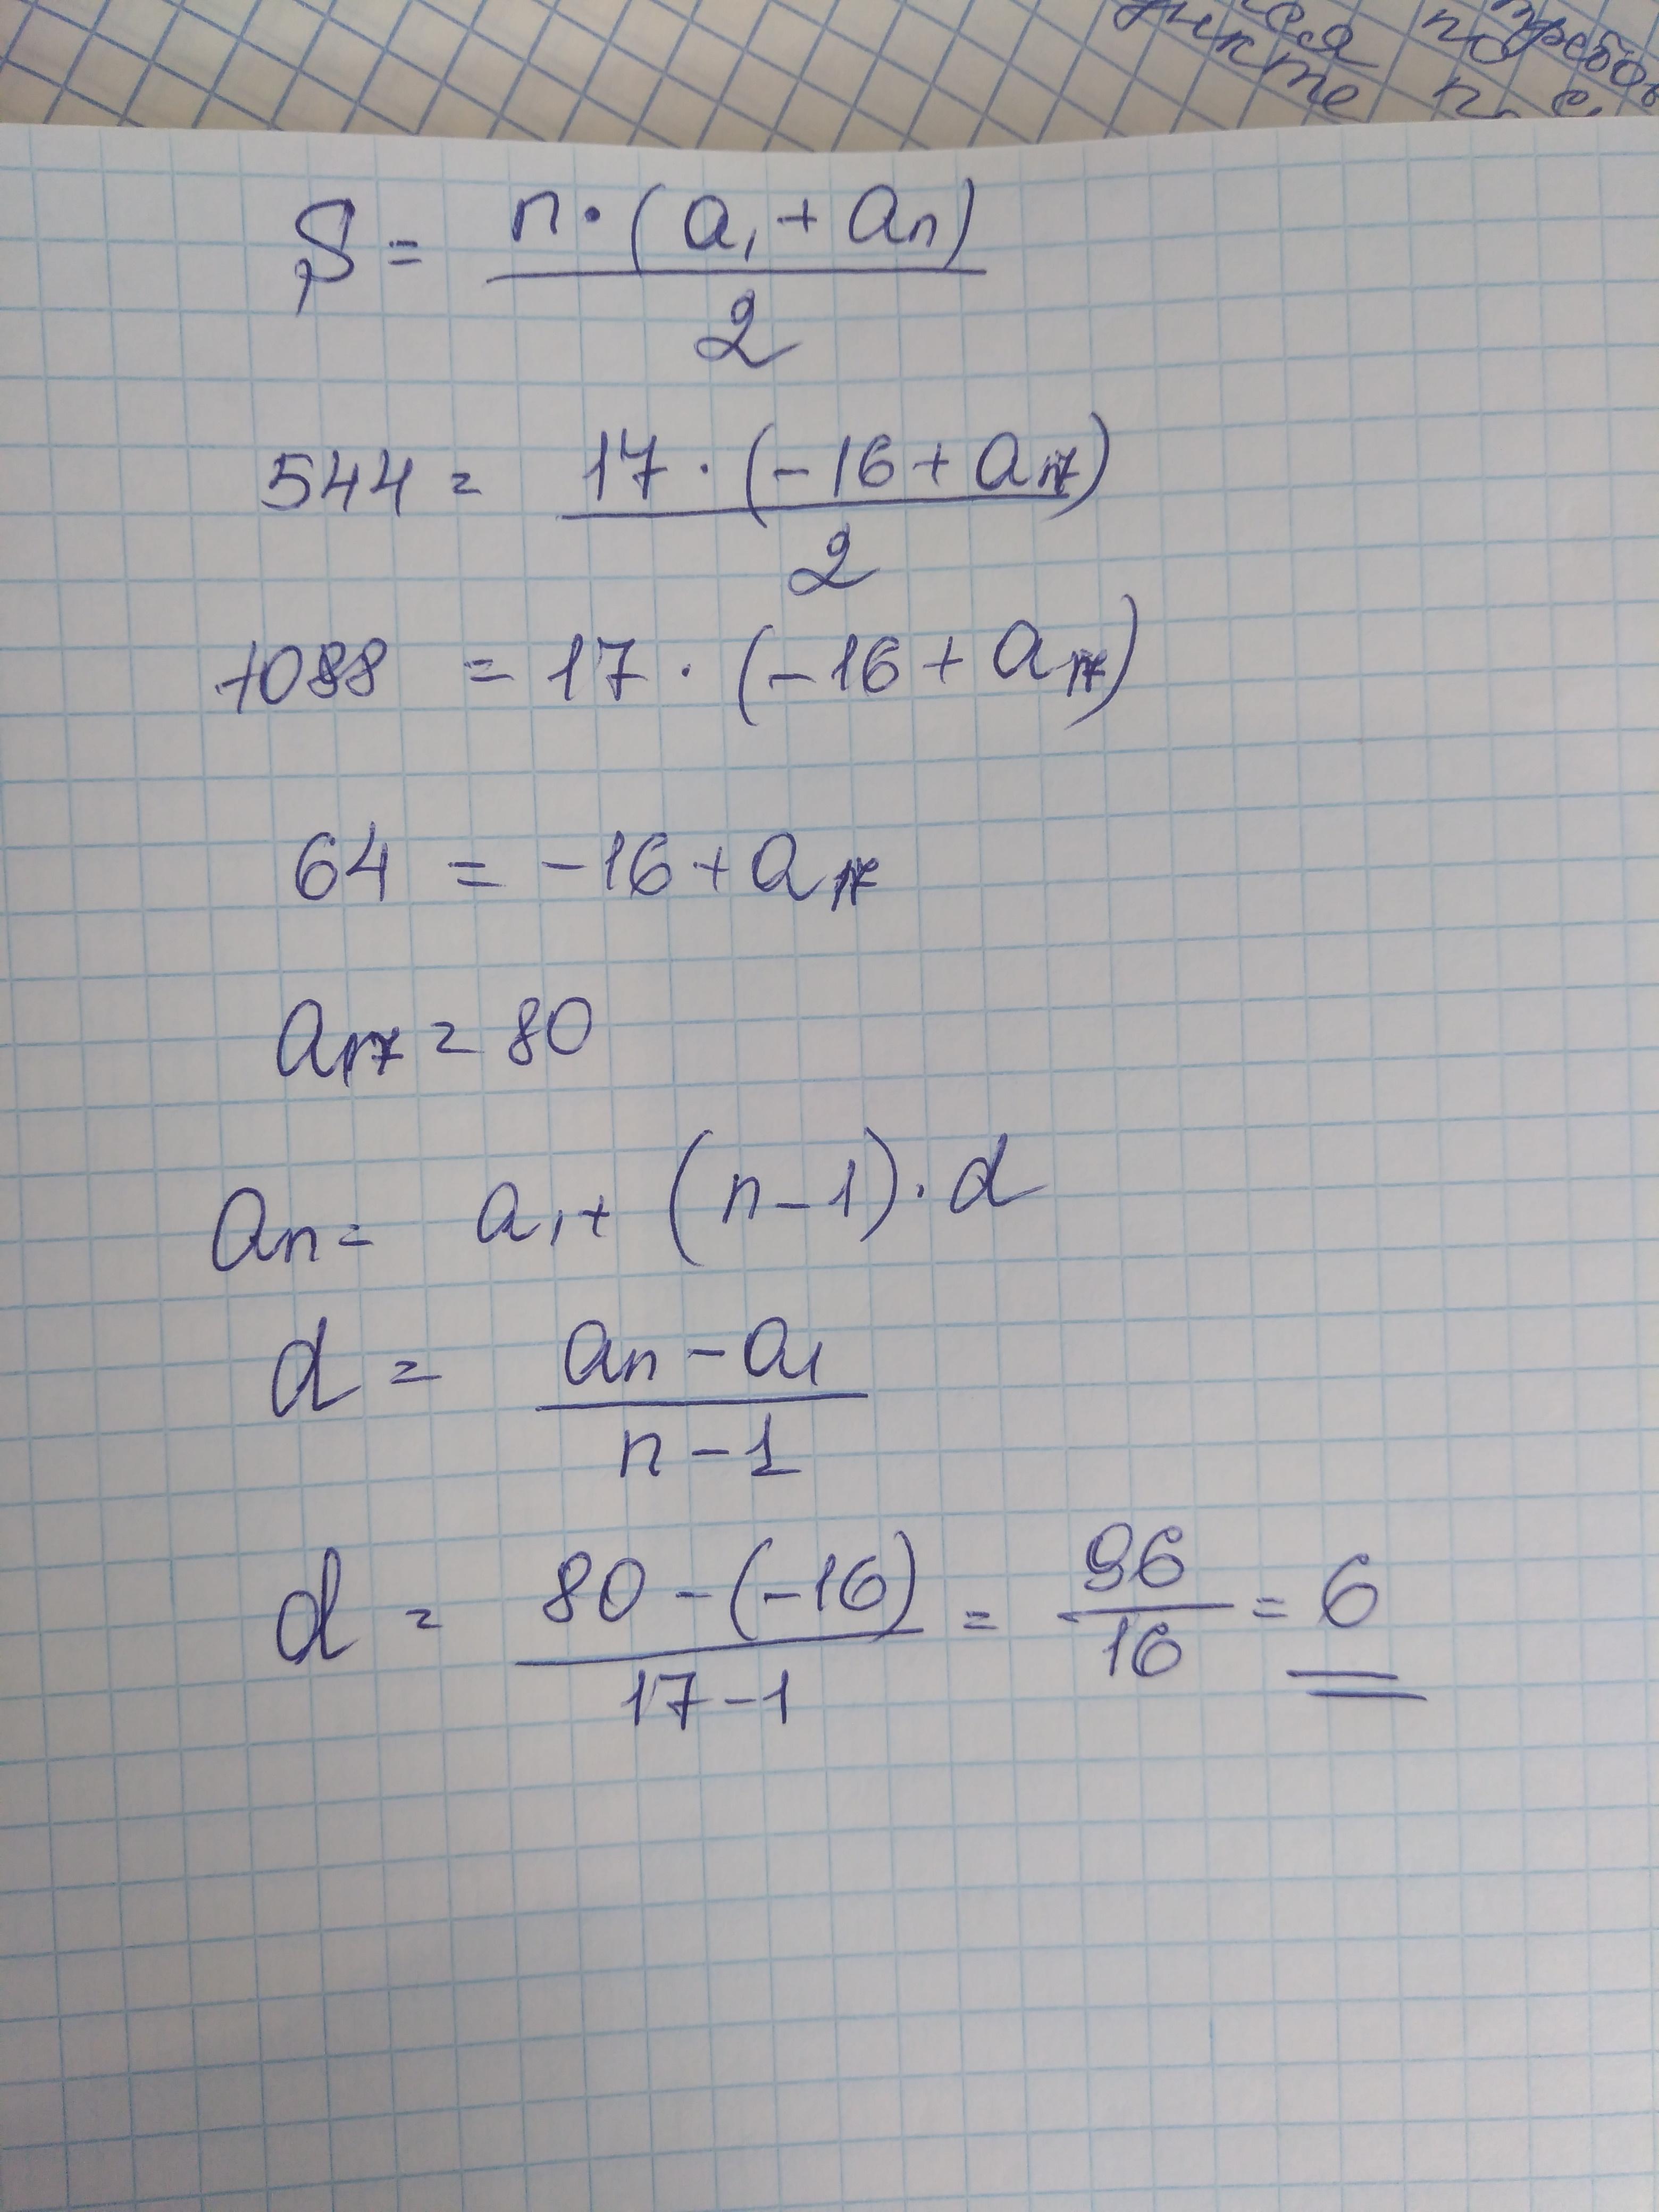 ся по требов
дикте
S = n·(a₁ + aₙ) / 2
544 = 17·(-16 + a₁₇) / 2
1088 = 17·(-16 + a₁₇)
64 = -16 + a₁₇
a₁₇ = 80
aₙ = a₁ + (n-1)·d
d = aₙ - a₁ / n-1
d = 80-(-16) / 17-1 = 96 / 16 = 6